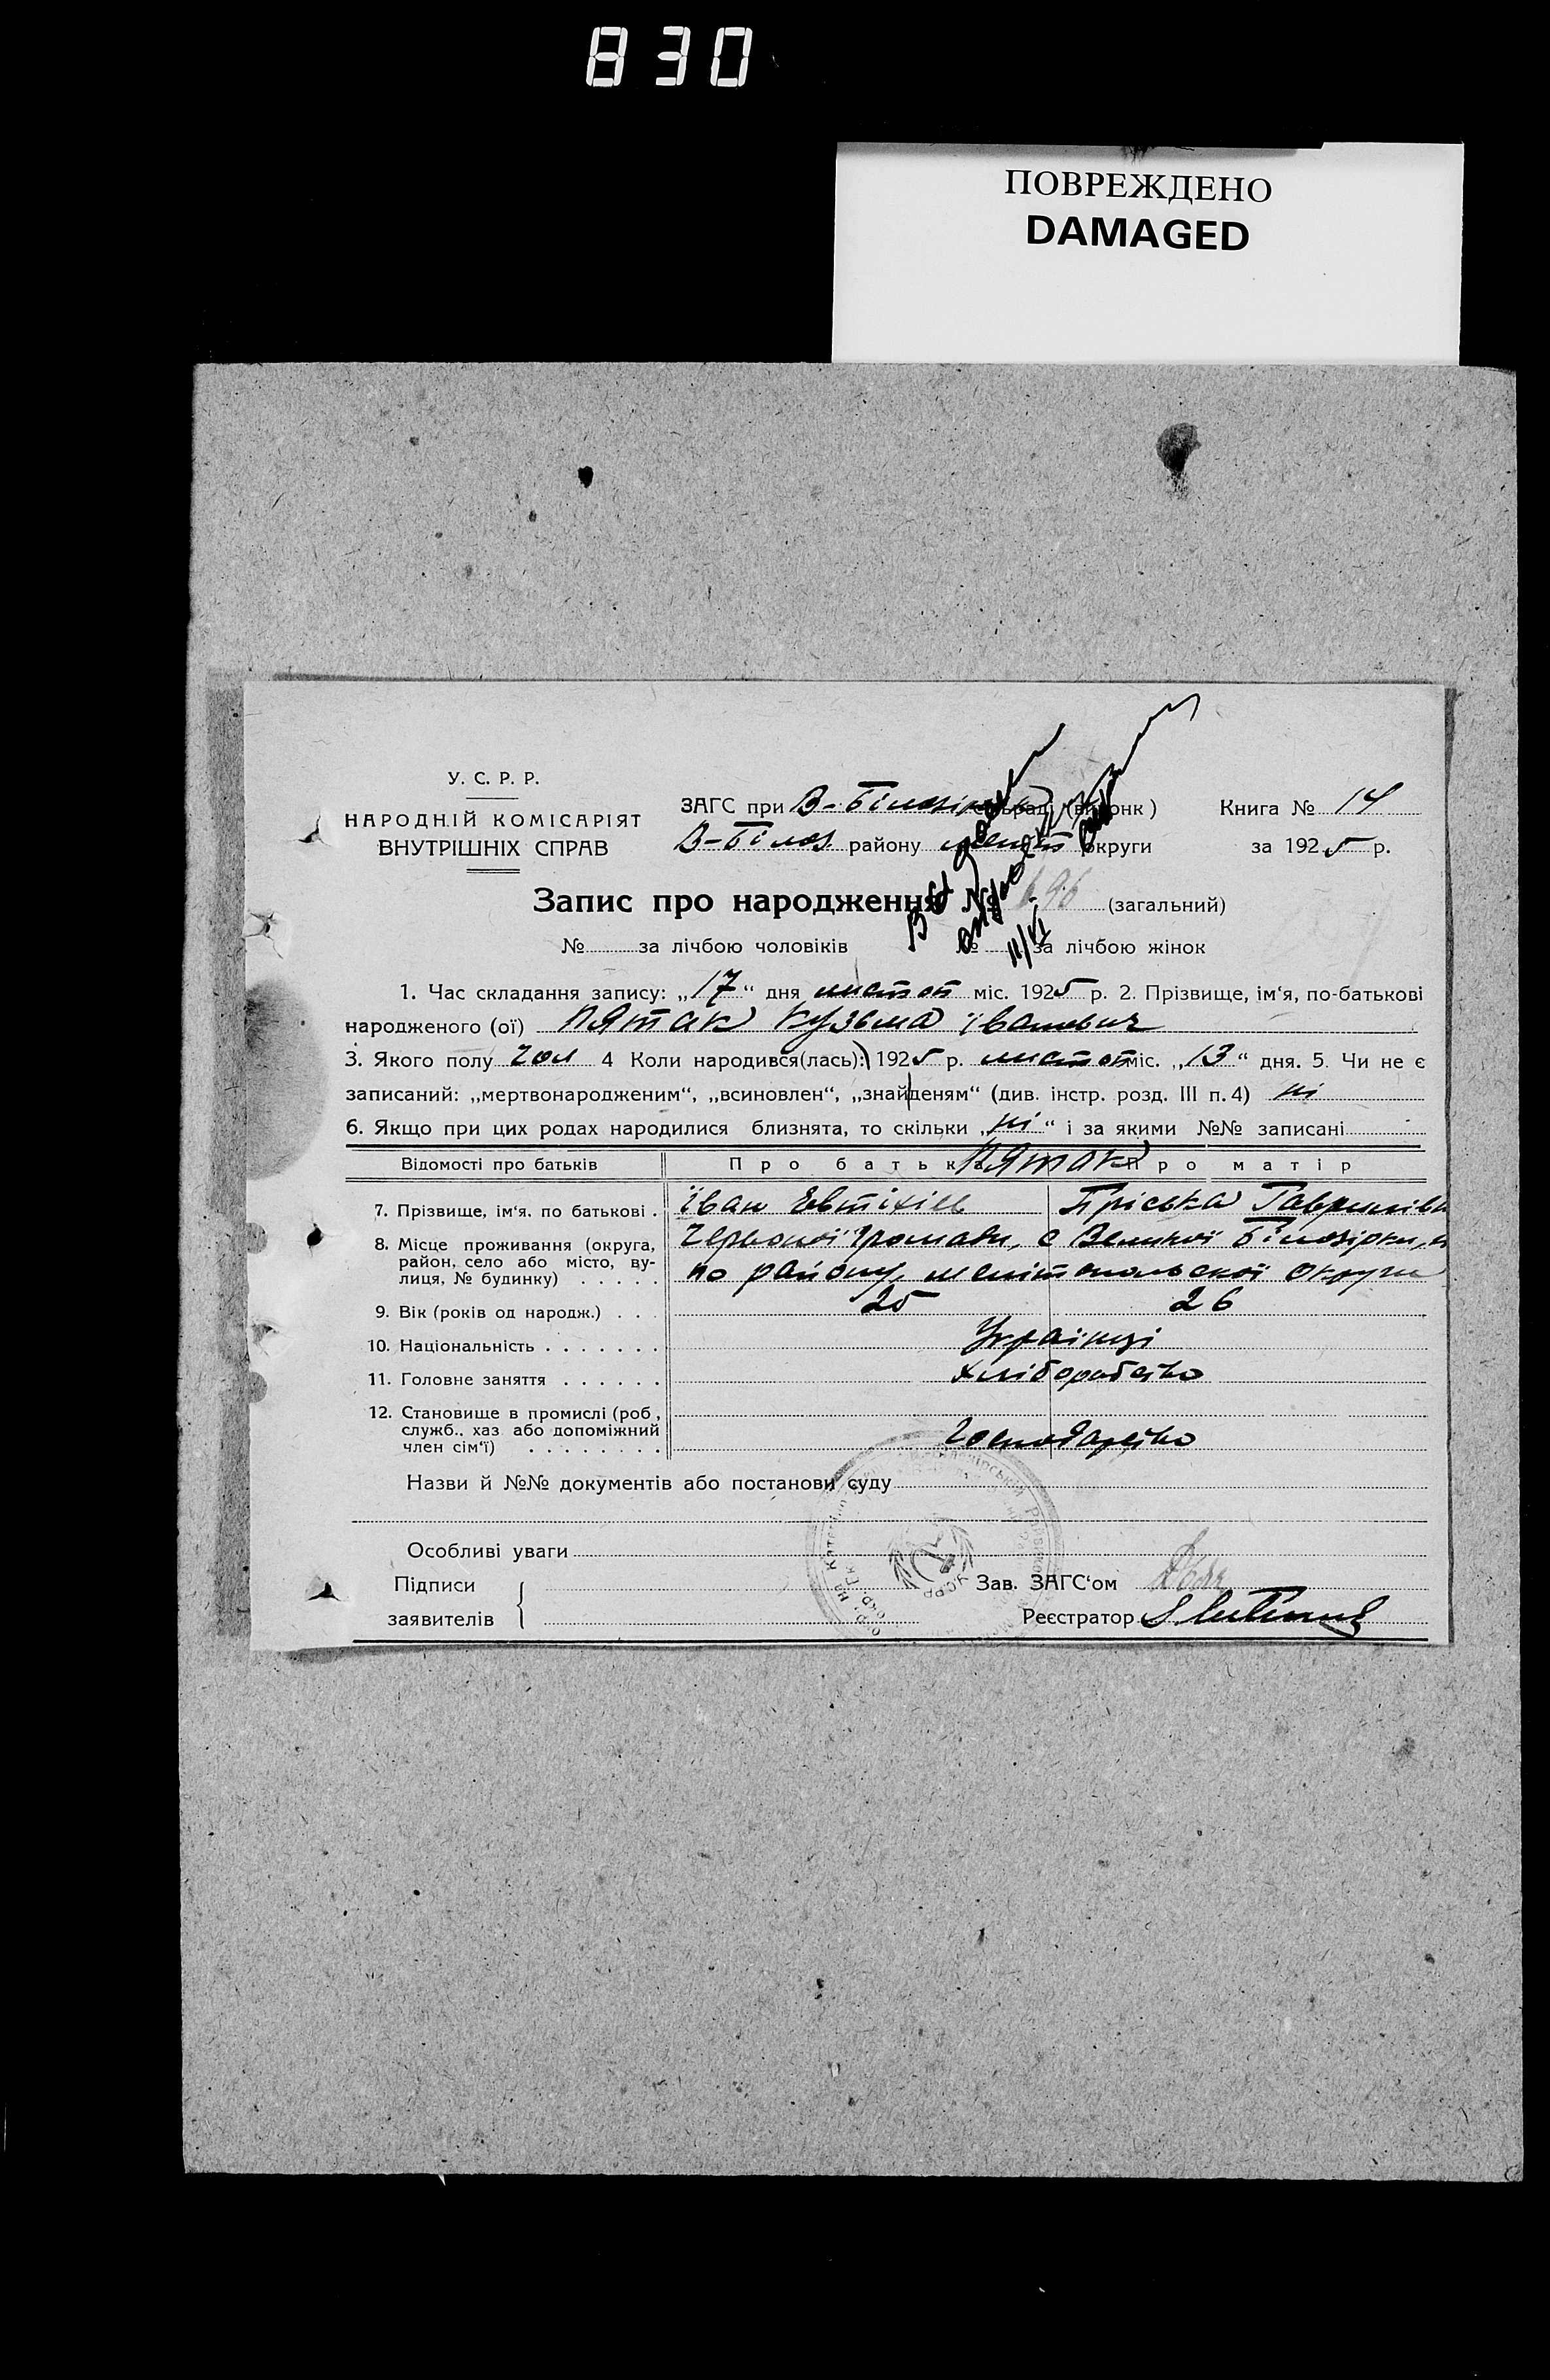 830
ПОВРЕЖДЕНО
DAMAGED
У. С. Р. Р.
НАРОДНІЙ КОМІСАРІЯТ
ВНУТРІШНІХ СПРАВ
ЗАГС при В-Білозірськ сельраді (виконк) Книга № 14
В-Білоз. району меліт округи за 1925 р.
Запис про народження № 696 (загальний)
№ за лічбою чоловіків № за лічбою жінок
11/VI
1. Час складання запису: „17“ дня листоп міс. 1925 р. 2. Прізвище, ім‘я, по-батькові
народженого (ої) Пятак Кузьма Іванович
3. Якого полу чол 4 Коли народився(лась): 1925 р. листоп міс. „13“ дня. 5. Чи не є
записаний: „мертвонародженим“, „всиновлен“, „знайденям“ (див. інстр. розд. III п. 4) ні
6. Якщо при цих родах народилися близнята, то скільки „ні“ і за якими №№ записані
Відомості про батьків Про батька Пятак Про матір
7. Прізвище, ім‘я, по батькові . Іван Евтіхієв Пріська Гаврилівн
8. Місце проживання (округа, район, село або місто, вулиця, № будинку) . . . . . Червоної Громади, с Великої Білозірки,
по району, мелітопольської округи
9. Вік (років од народж.) . . . 25 26
10. Національність . . . . . . . Українці
11. Головне заняття . . . . . . хліборобство
12. Становище в промислі (роб, служб., хаз або допоміжний член сім‘ї) . . . . . . . . Господарство
Назви й №№ документів або постанови суду
Особливі уваги
Підписи
заявителів
Зав. ЗАГС‘ом
Реєстратор
УСРР